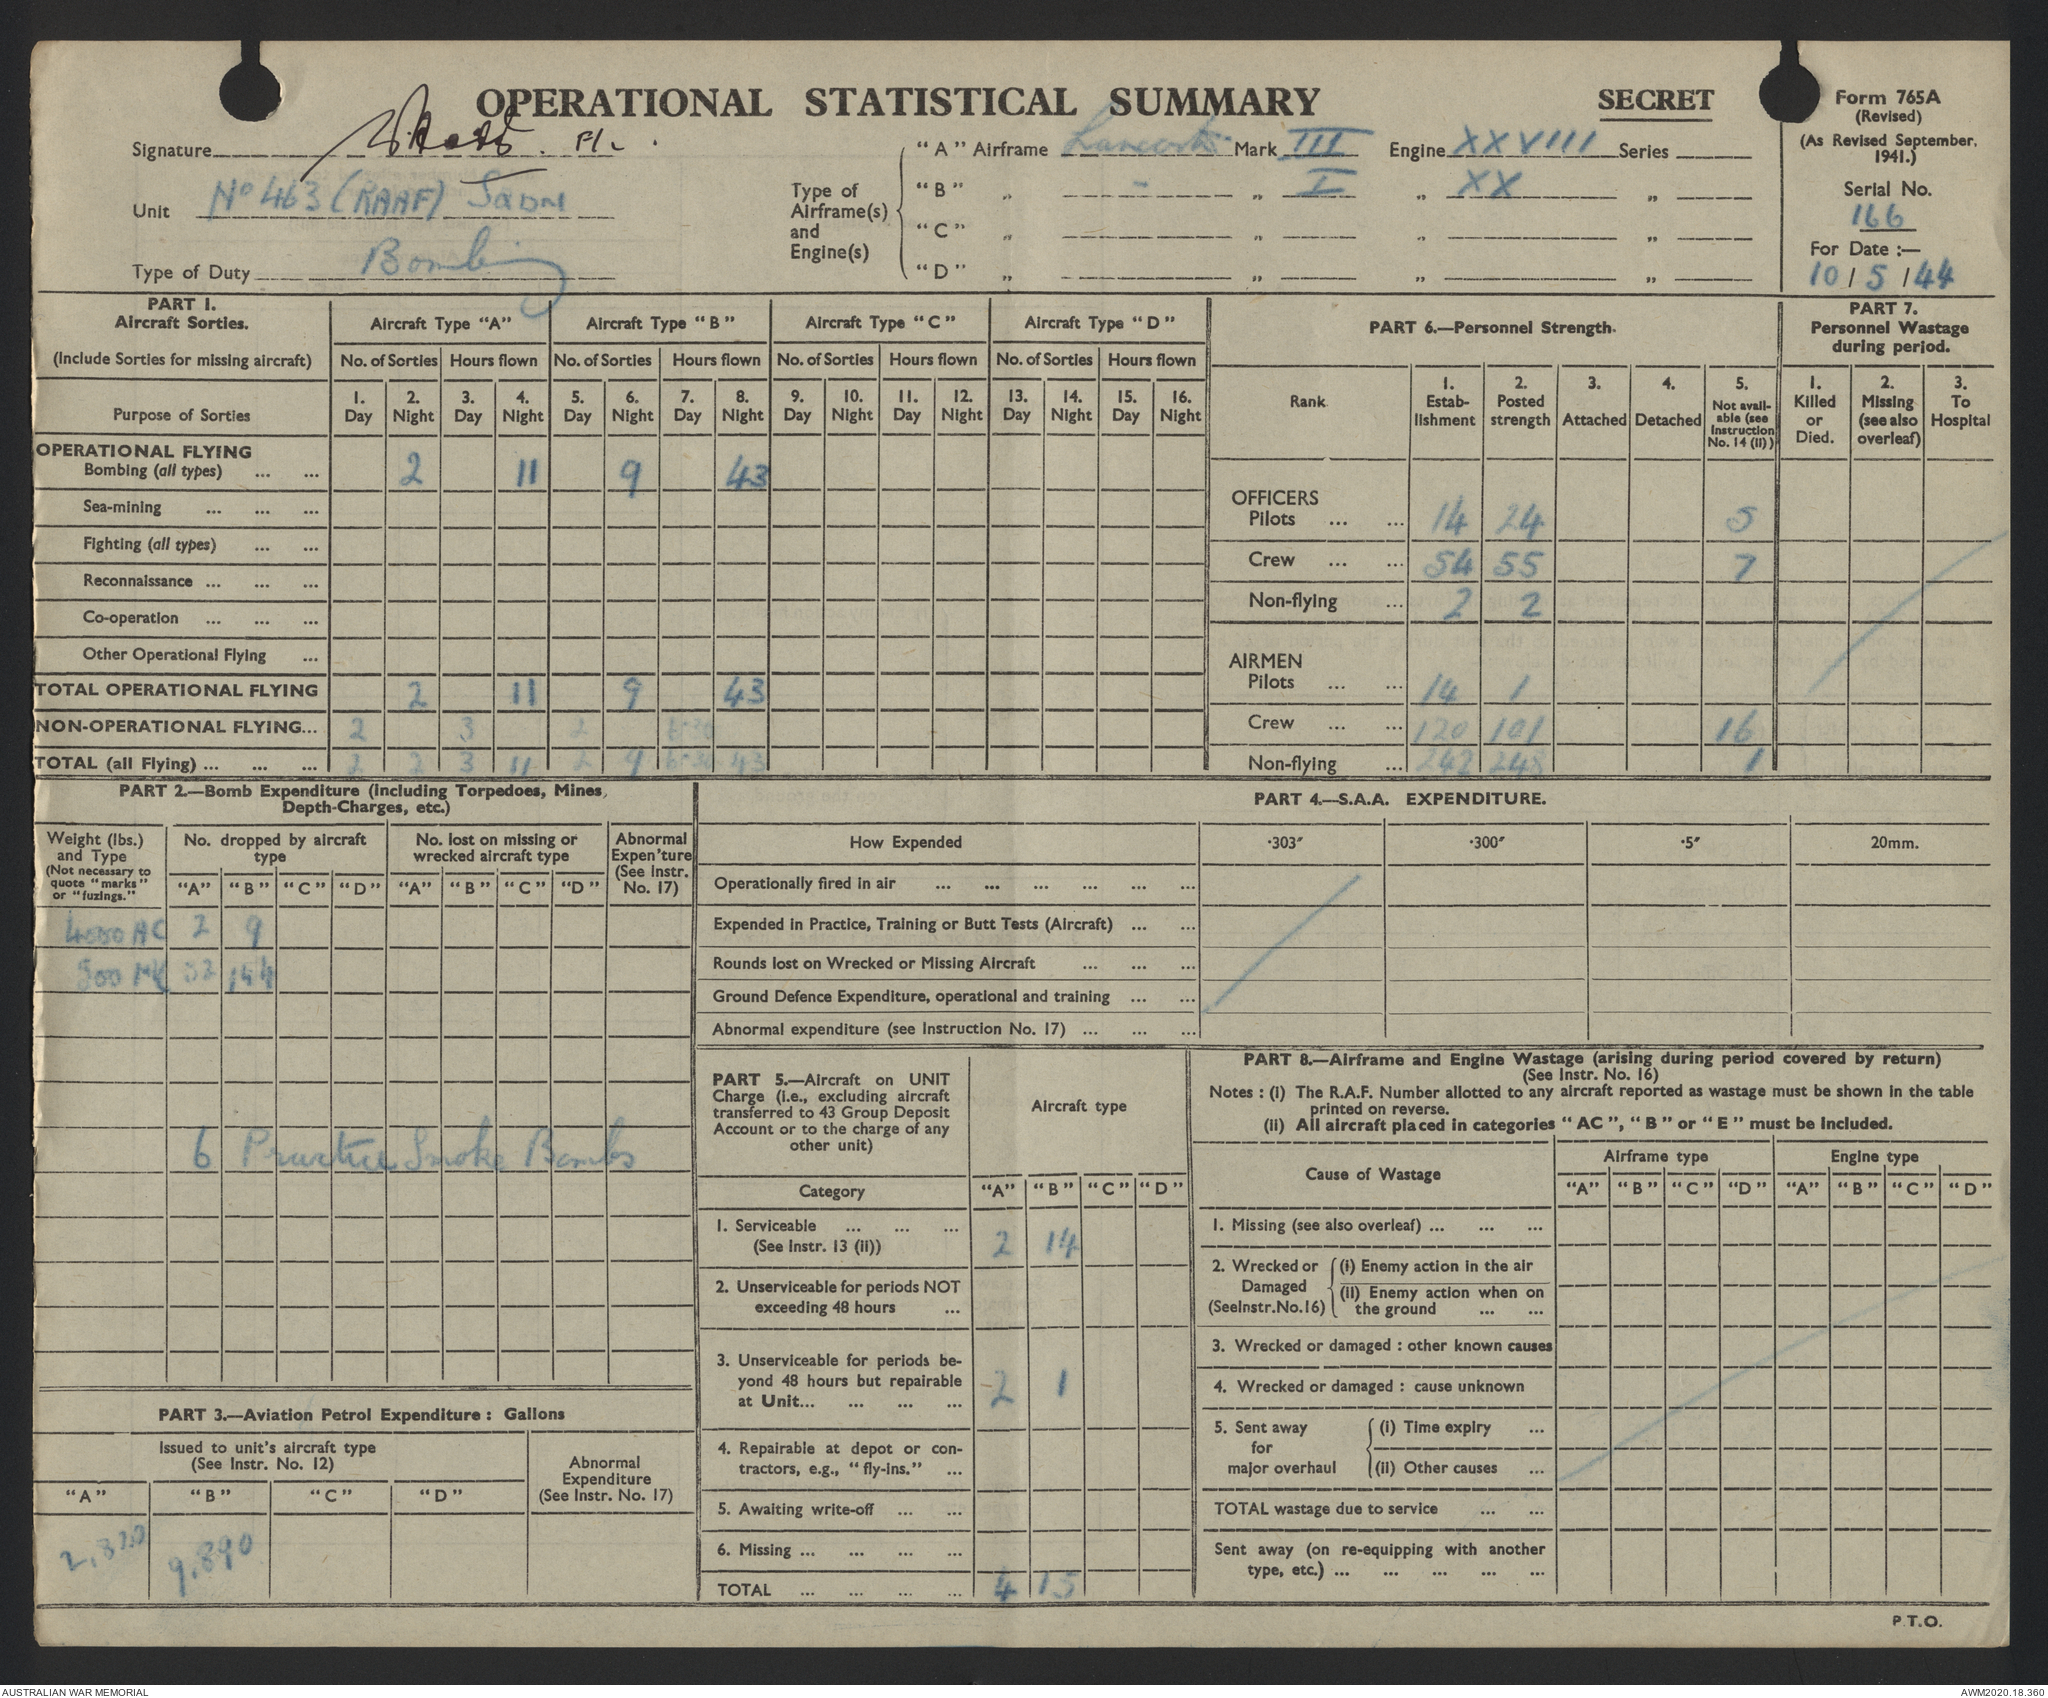 OPERATIONAL STATISTICAL SUMMARY
SECRET
Form 765A
(Revised)
(As Revised September, 1941.)
Serial No.
166
For Date :—
10 / 5 / 44
Signature
Unit No 463 (RAAF) Sqdn
Type of Duty Bombing
Type of Airframe(s) and Engine(s)
"A" Airframe Lancaster Mark III Engine XXVIII Series
"B" „ - „ I „ XX „
"C" „ „ „ „
"D" „ „ „ „
PART 1.
Aircraft Sorties.
(Include Sorties for missing aircraft)
Purpose of Sorties
Aircraft Type "A" Aircraft Type "B" Aircraft Type "C" Aircraft Type "D"
No. of Sorties Hours flown No. of Sorties Hours flown No. of Sorties Hours flown No. of Sorties Hours flown
1. Day 2. Night 3. Day 4. Night 5. Day 6. Night 7. Day 8. Night 9. Day 10. Night 11. Day 12. Night 13. Day 14. Night 15. Day 16. Night
OPERATIONAL FLYING
Bombing (all types) ... ... 2 11 9 43
Sea-mining ... ... ...
Fighting (all types) ... ...
Reconnaissance ... ... ...
Co-operation ... ... ...
Other Operational Flying ...
TOTAL OPERATIONAL FLYING 2 11 9 43
NON-OPERATIONAL FLYING... 2 3 2 6·30
TOTAL (all Flying) ... ... ... 2 2 3 11 2 9 6·30 43
PART 6.—Personnel Strength.
Rank
1. Estab-lishment
2. Posted strength
3. Attached
4. Detached
5. Not avail-able (see Instruction No. 14 (ii))
OFFICERS
Pilots ... ... 14 24 5
Crew ... ... 54 55 7
Non-flying ... 2 2
AIRMEN
Pilots ... ... 14 1
Crew ... ... 120 101 16
Non-flying ... 242 248 1
PART 7.
Personnel Wastage during period.
1. Killed or Died.
2. Missing (see also overleaf)
3. To Hospital
PART 2.—Bomb Expenditure (Including Torpedoes, Mines, Depth-Charges, etc.)
Weight (lbs.) and Type (Not necessary to quote "marks" or "fuzings."
No. dropped by aircraft type
No. lost on missing or wrecked aircraft type
Abnormal Expen'ture (See Instr. No. 17)
"A" "B" "C" "D" "A" "B" "C" "D"
4000 2 9
500 32 144
6 Practice Smoke Bombs
PART 3.—Aviation Petrol Expenditure : Gallons
Issued to unit's aircraft type
(See Instr. No. 12)
Abnormal Expenditure (See Instr. No. 17)
"A" "B" "C" "D"
9,890
PART 4.—S.A.A. EXPENDITURE.
How Expended ·303" ·300" ·5" 20mm.
Operationally fired in air ... ... ... ... ... ...
Expended in Practice, Training or Butt Tests (Aircraft) ... ...
Rounds lost on Wrecked or Missing Aircraft ... ... ...
Ground Defence Expenditure, operational and training ... ...
Abnormal expenditure (see Instruction No. 17) ... ... ...
PART 5.—Aircraft on UNIT
Charge (i.e., excluding aircraft
transferred to 43 Group Deposit
Account or to the charge of any
other unit)
Aircraft type
Category "A" "B" "C" "D"
1. Serviceable ... ... ...
(See Instr. 13 (ii)) 2 14
2. Unserviceable for periods NOT
exceeding 48 hours ...
3. Unserviceable for periods be-
yond 48 hours but repairable
at Unit... ... ... ... 2 1
4. Repairable at depot or con-
tractors, e.g., "fly-ins." ...
5. Awaiting write-off ... ...
6. Missing ... ... ... ...
TOTAL ... ... ... ... 4 15
PART 8.—Airframe and Engine Wastage (arising during period covered by return)
(See Instr. No. 16)
Notes : (i) The R.A.F. Number allotted to any aircraft reported as wastage must be shown in the table
printed on reverse.
(ii) All aircraft placed in categories "AC", "B" or "E" must be included.
Cause of Wastage
Airframe type Engine type
"A" "B" "C" "D" "A" "B" "C" "D"
1. Missing (see also overleaf) ... ... ...
2. Wrecked or Damaged (See Instr. No. 16)
(i) Enemy action in the air
(ii) Enemy action when on
the ground ... ...
3. Wrecked or damaged : other known causes
4. Wrecked or damaged : cause unknown
5. Sent away for major overhaul
(i) Time expiry ...
(ii) Other causes ...
TOTAL wastage due to service ... ...
Sent away (on re-equipping with another
type, etc.) ... ... ... ... ...
P.T.O.
AUSTRALIAN WAR MEMORIAL
AWM2020.18.360